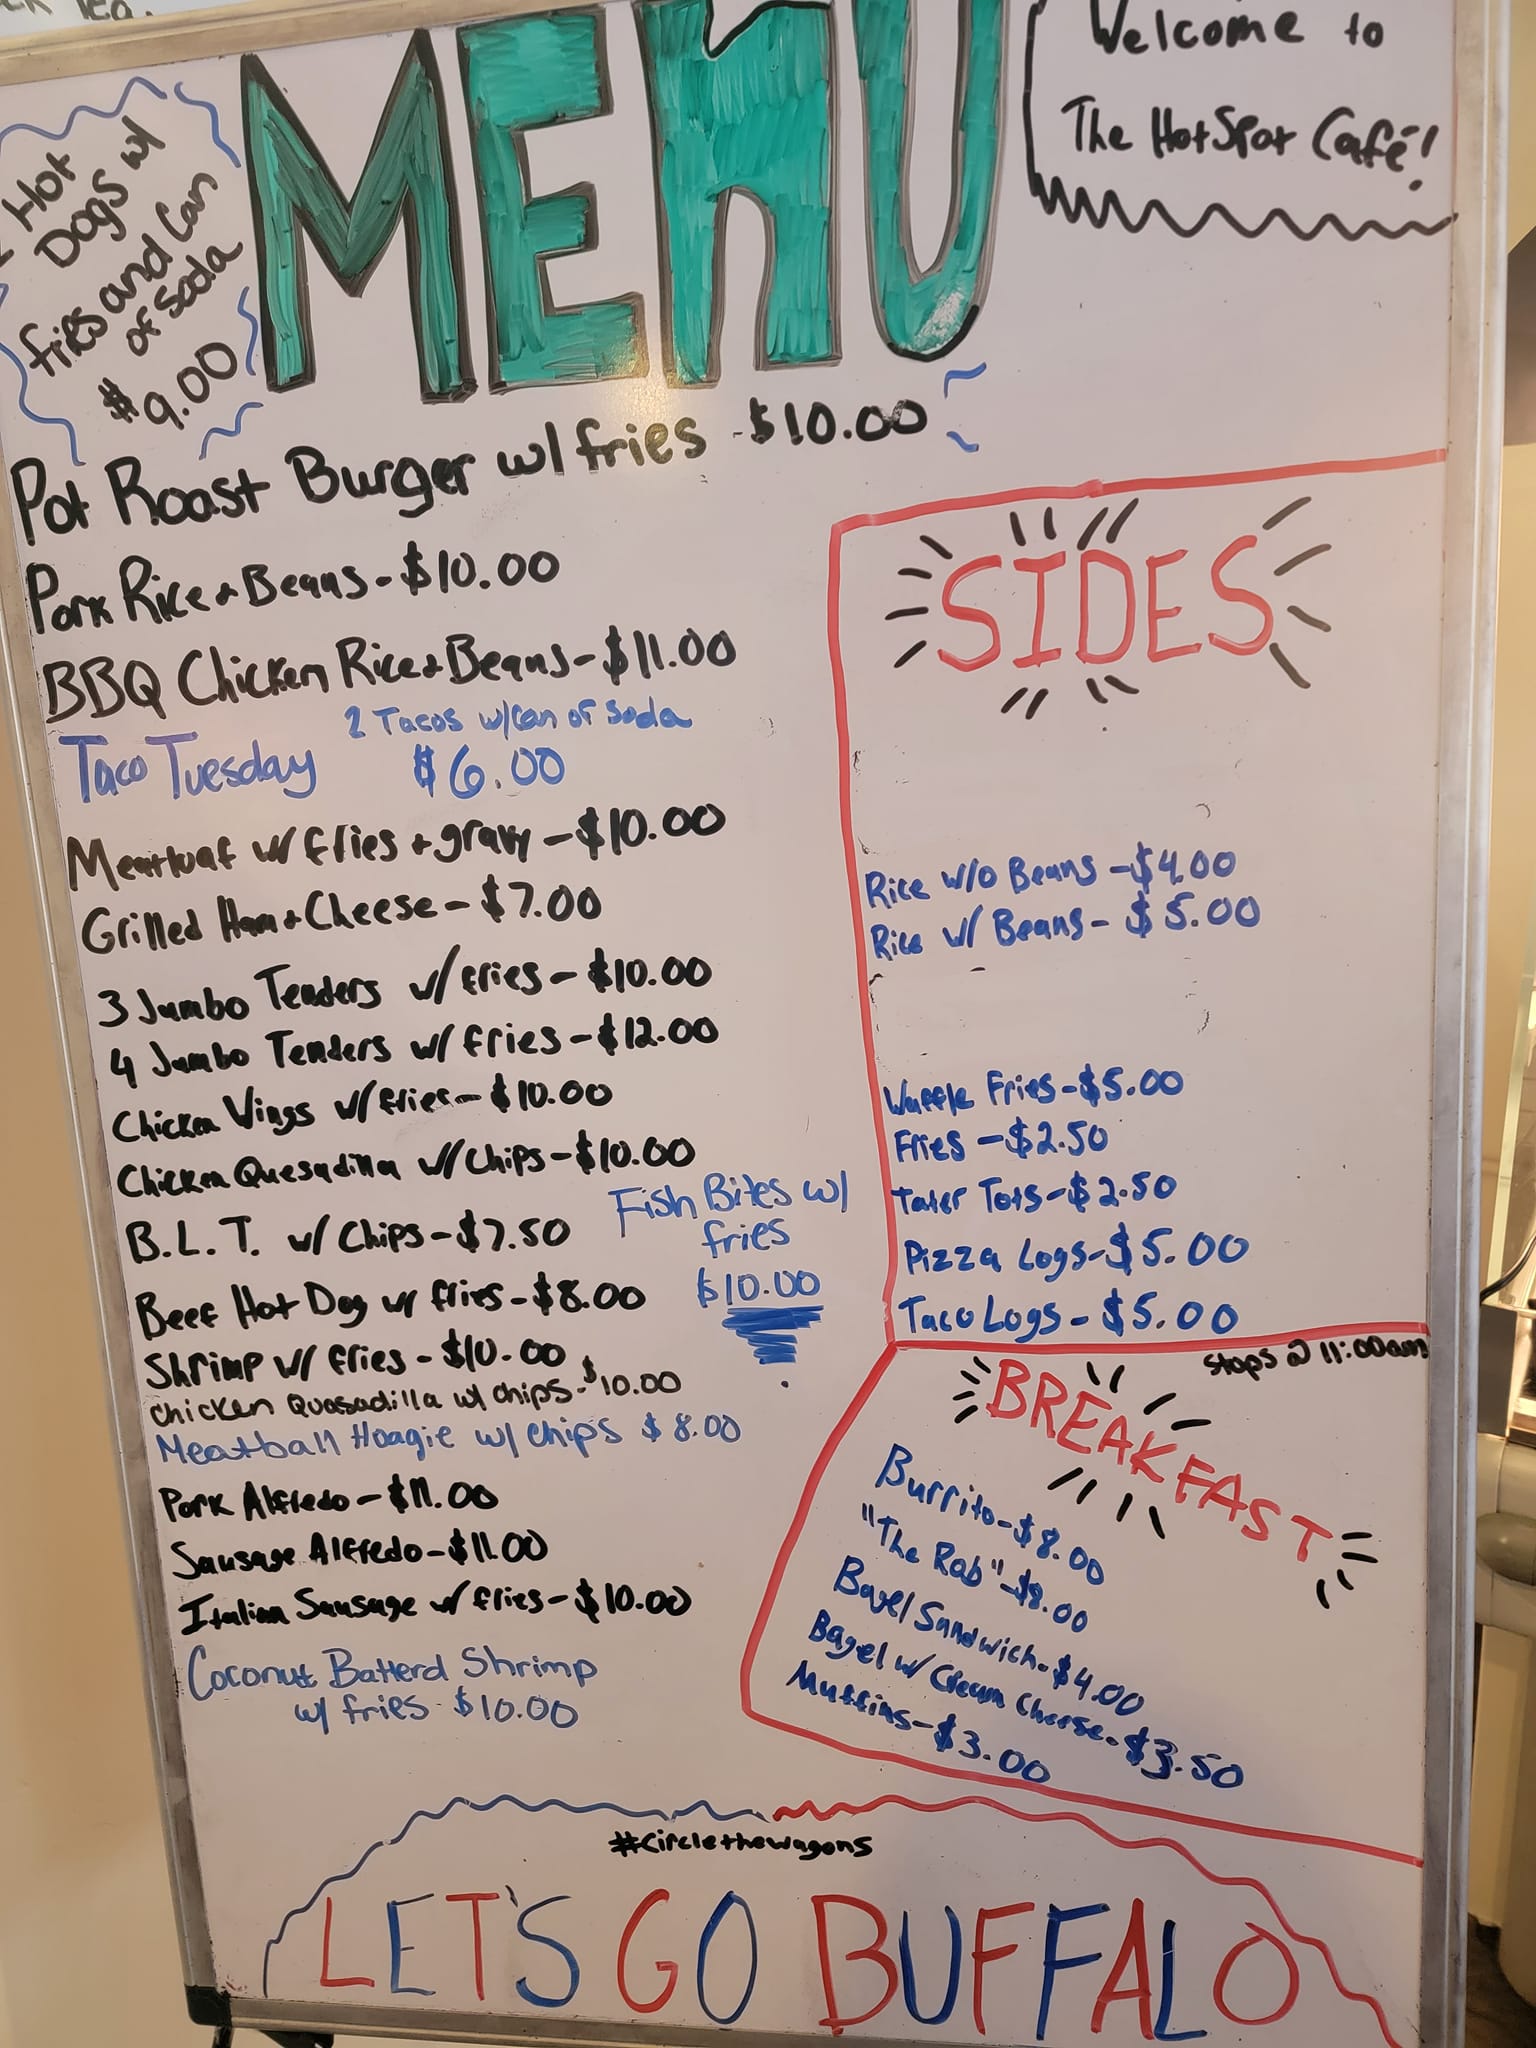 Tea.
MENU
Welcome to
The HotSpot Café!
Hot
Dogs w/
fries and Can
of Soda
$9.00
Pot Roast Burger w/ fries - $10.00
Pork Rice + Beans - $10.00
BBQ Chicken Rice + Beans - $11.00
Taco Tuesday
2 Tacos w/ can of Soda
$6.00
Meatloaf w/ fries + gravy - $10.00
Grilled Ham + Cheese - $7.00
3 Jumbo Tenders w/ fries - $10.00
4 Jumbo Tenders w/ fries - $12.00
Chicken Wings w/ fries - $10.00
Chicken Quesadilla w/ Chips - $10.00
B.L.T. w/ Chips - $7.50
Beef Hot Dog w/ fries - $8.00
Shrimp w/ fries - $10.00
Chicken Quasadilla w/ chips - $10.00
Meatball Hoagie w/ chips $8.00
Pork Alfredo - $11.00
Sausage Alfredo - $11.00
Italian Sausage w/ fries - $10.00
Coconut Batterd Shrimp
w/ fries - $10.00
Fish Bites w/
fries
$10.00
SIDES
Rice w/o Beans - $4.00
Rice w/ Beans - $5.00
Waffle Fries - $5.00
Fries - $2.50
Tater Tots - $2.50
Pizza Logs - $5.00
Taco Logs - $5.00
Stops @ 11:00am
BREAKFAST
Burrito - $8.00
"The Rob" - $8.00
Bagel Sandwich - $4.00
Bagel w/ Cream Cheese - $3.50
Muffins - $3.00
#Circlethewagons
LET'S GO BUFFALO